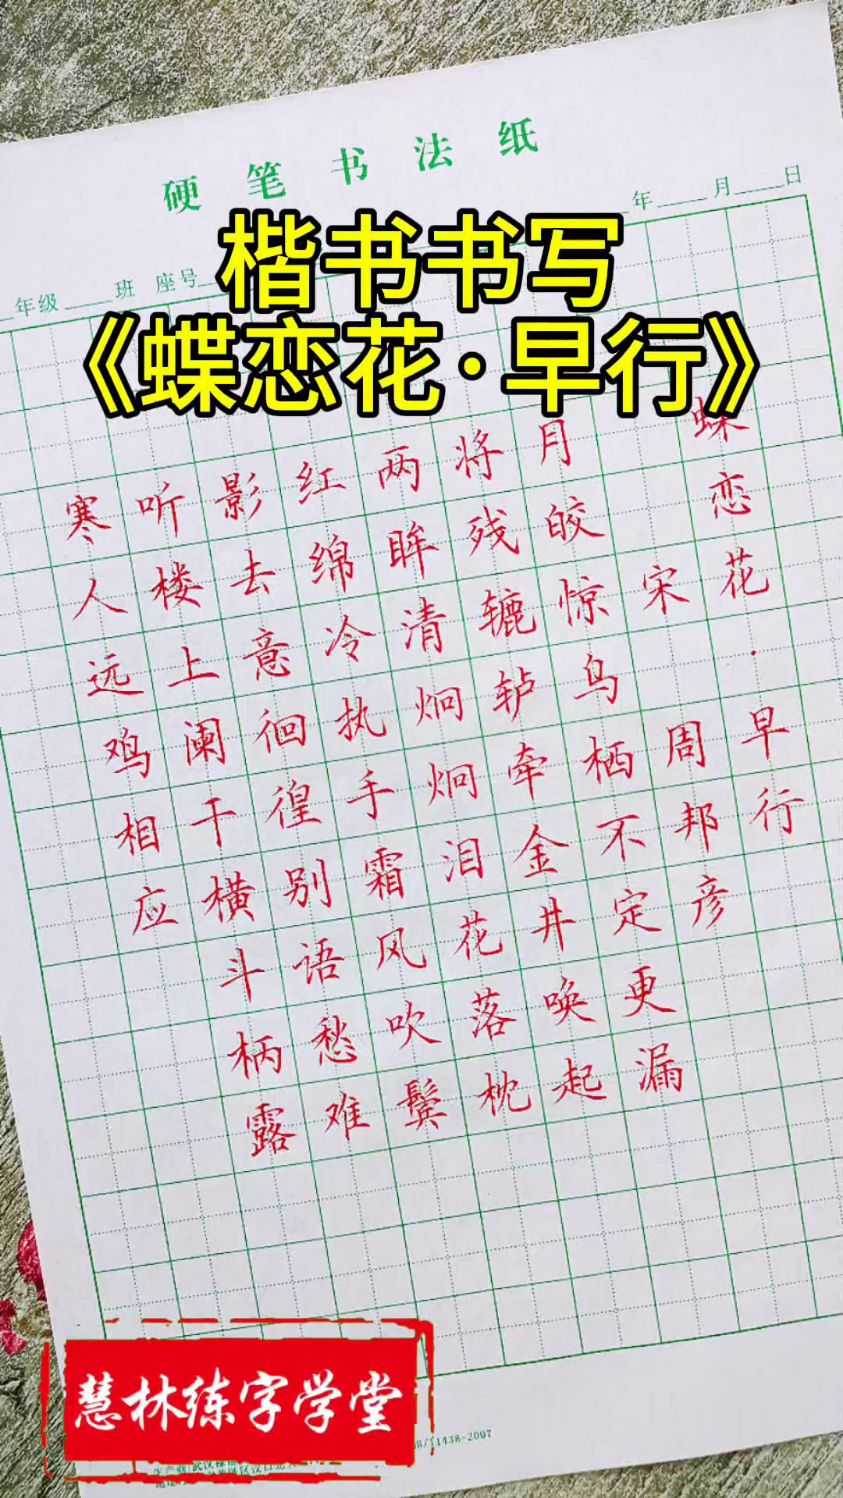 硬笔书法纸
年 月 日
年级 班 座号
楷书书写
《蝶恋花·早行》
蝶恋花·早行
宋 周邦彦
月皎惊乌栖不定更漏
将残辘轳牵金井唤起
两眸清炯炯泪花落枕
红绵冷执手霜风吹鬓
影去意徊徨别语愁难
听楼上阑干横斗柄露
寒人远鸡相应
慧林练字学堂